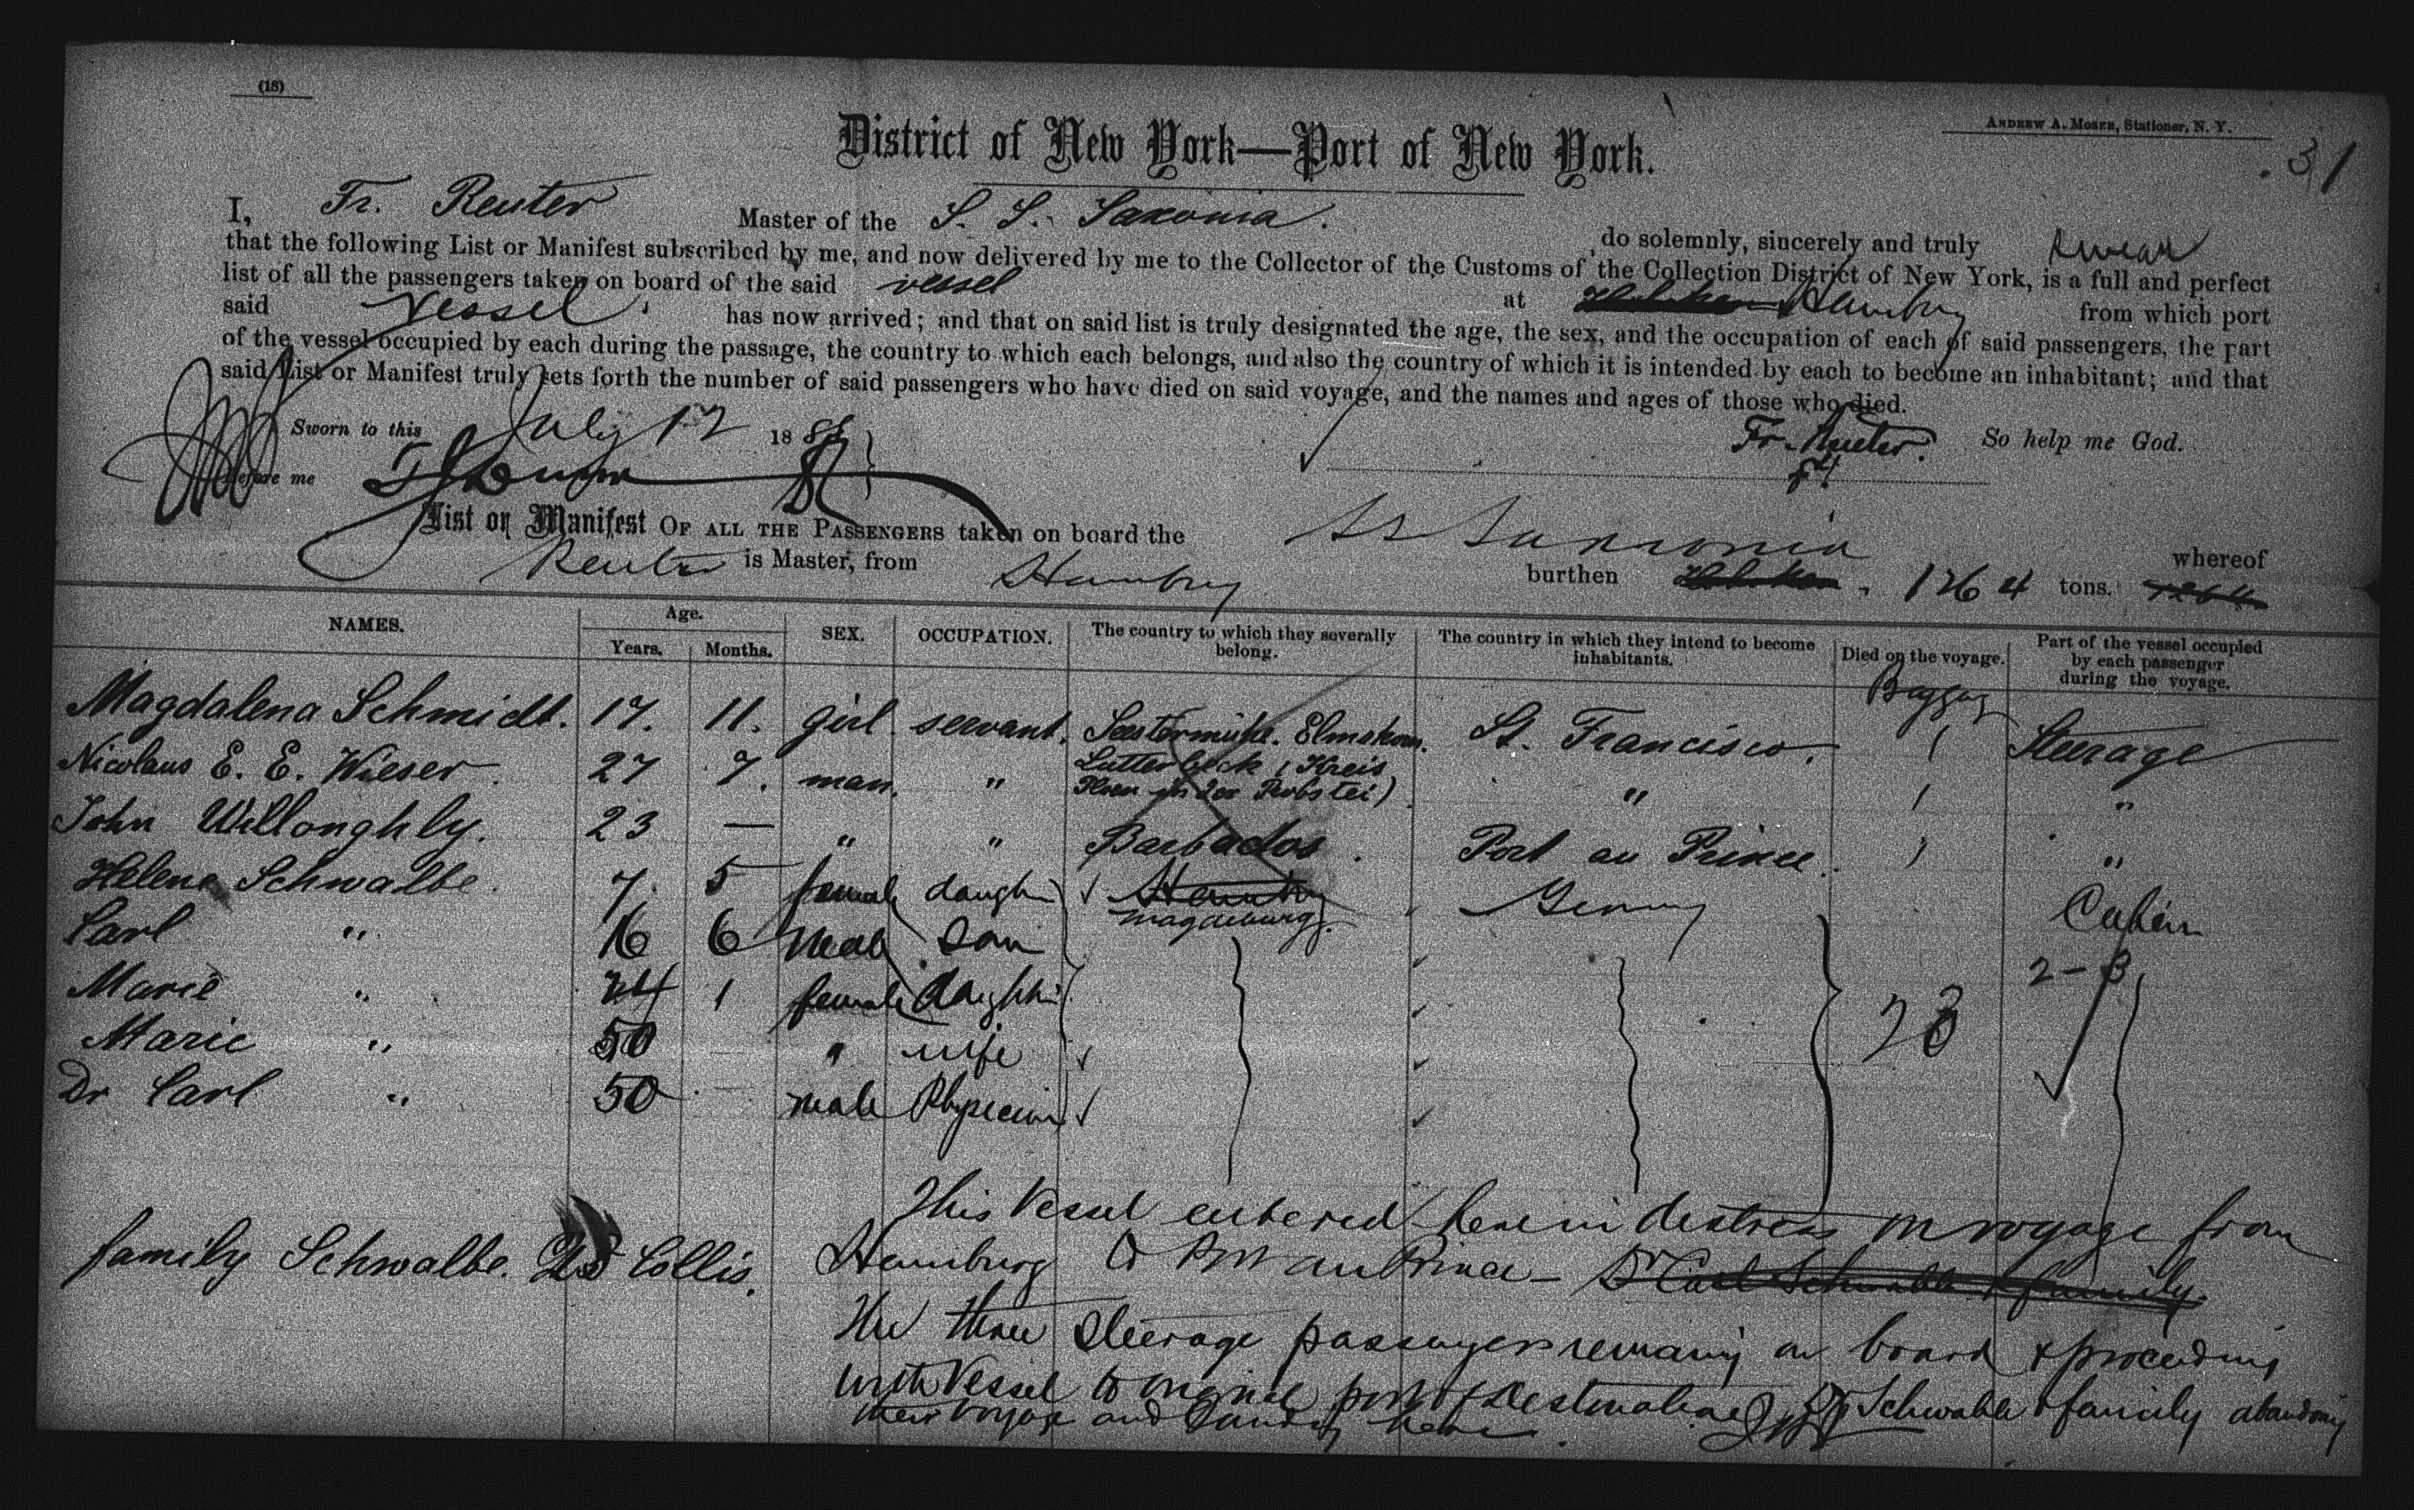 (18)
ANDREW A. MOSER, Stationer, N. Y.
31
District of New York—Port of New York.
I, Fr. Reuter Master of the S. S. Saxonia. do solemnly, sincerely and truly swear
that the following List or Manifest subscribed by me, and now delivered by me to the Collector of the Customs of the Collection District of New York, is a full and perfect
list of all the passengers taken on board of the said vessel at Hamburg from which port
said Vessel has now arrived; and that on said list is truly designated the age, the sex, and the occupation of each of said passengers, the part
of the vessel occupied by each during the passage, the country to which each belongs, and also the country of which it is intended by each to become an inhabitant; and that
said List or Manifest truly sets forth the number of said passengers who have died on said voyage, and the names and ages of those who died.
Sworn to this July 12 18 Fr. Reuter. So help me God.
Before me
List or Manifest OF ALL THE PASSENGERS taken on board the SS Saxonia whereof
Reuter is Master, from Hamburg burthen 1264 tons.
NAMES. Age. Years. Months. SEX. OCCUPATION. The country to which they severally belong. The country in which they intend to become inhabitants. Died on the voyage. Part of the vessel occupied by each passenger during the voyage.
Baggag
Magdalena Schmidt. 17. 11. girl servant. Seestermühe. Elmshorn. St. Francisco. 1 Steerage
Nicolaus E. E. Wieser. 27 7. man. " Lutterbeck (Kreis Ploen in der Probstei) " 1 "
John Willoughly. 23 — " " Barbados. Port au Prince. 1 "
Helene Schwalbe. 7. 5 female daughter Magdeburg. Germany Cabin
Carl " 16 6 male Son
Marie " 24 1 female daughter 23 2-3
Marie " 50 " wife
Dr Carl " 50 male Physician
This Vessel entered here in distress on voyage from
family Schwalbe. 23 Collis. Hamburg to Port au Prince - Dr Carl Schwalbe & family.
The three Steerage passengers remaining on board & proceeding
with Vessel to original port of Destination Dr Schwalbe & family abandoning
their voyage and landing here.